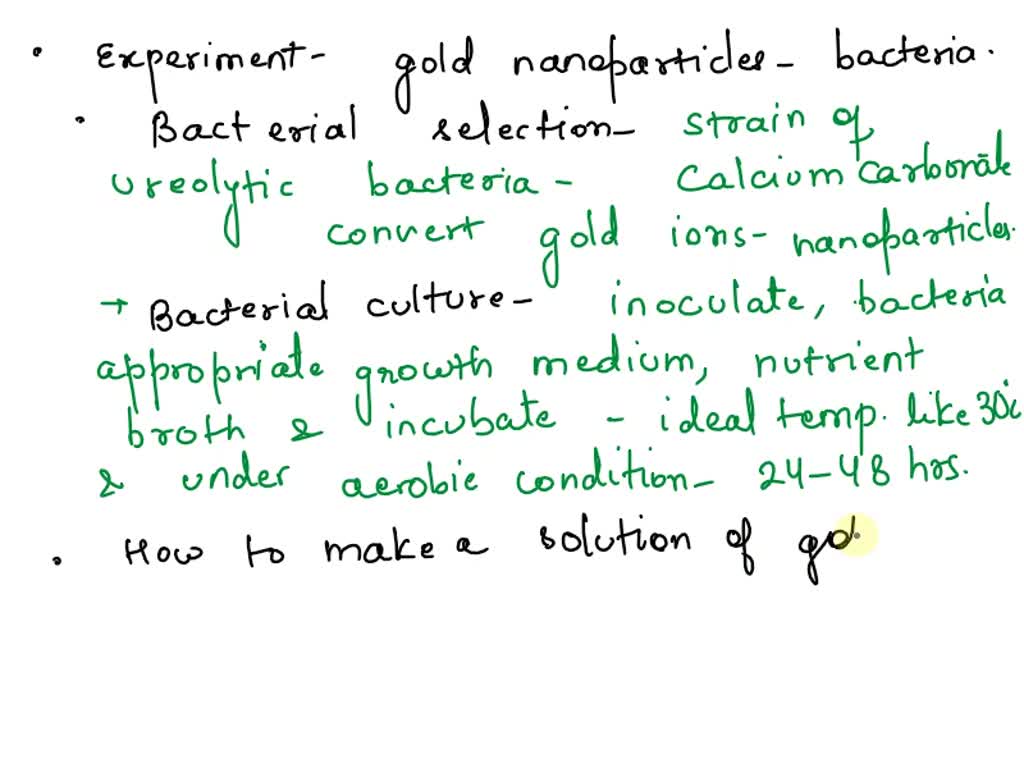 • Experiment- gold nanoparticles- bacteria.
• Bacterial selection- strain of
ureolytic bacteria- calcium carbonate
convert gold ions- nanoparticles.
→ Bacterial culture- inoculate, bacteria
appropriate growth medium, nutrient
broth & incubate - ideal temp. like 30°c
& under aerobic condition- 24-48 hrs.
• How to make a solution of gol